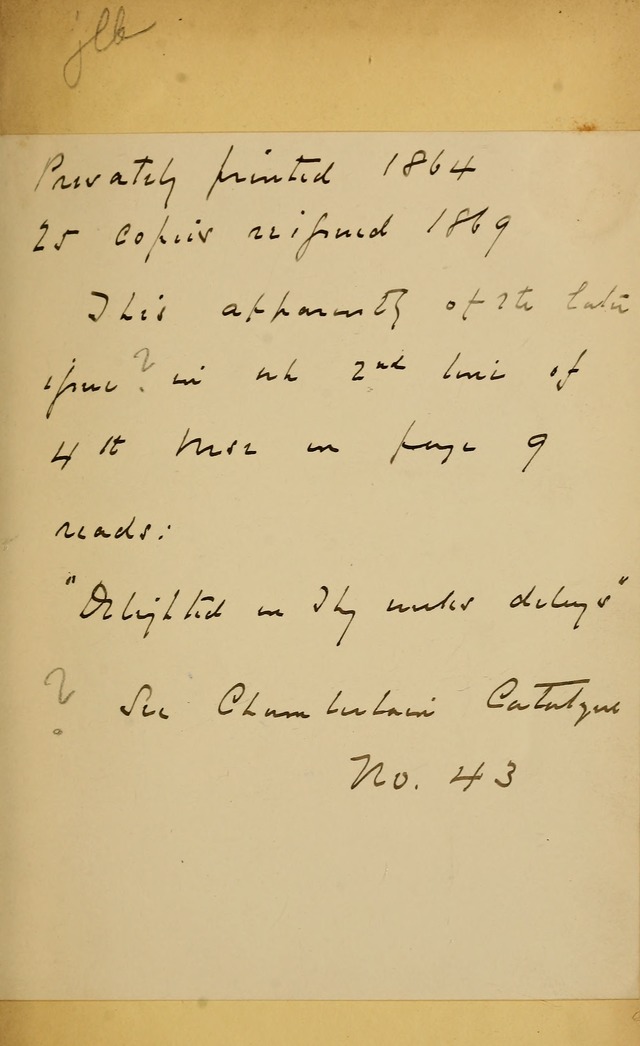 jlb
Privately printed 1864
25 copies reissued 1869
This apparently of the later
issue ? in wh 2nd line of
4th verse on page 9
reads:
"Delighted in Thy delays"
? See Chamberlain Catalogue
No. 43